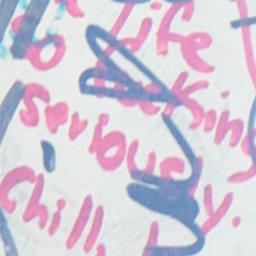 so life
fucking
seriously.
Chill,